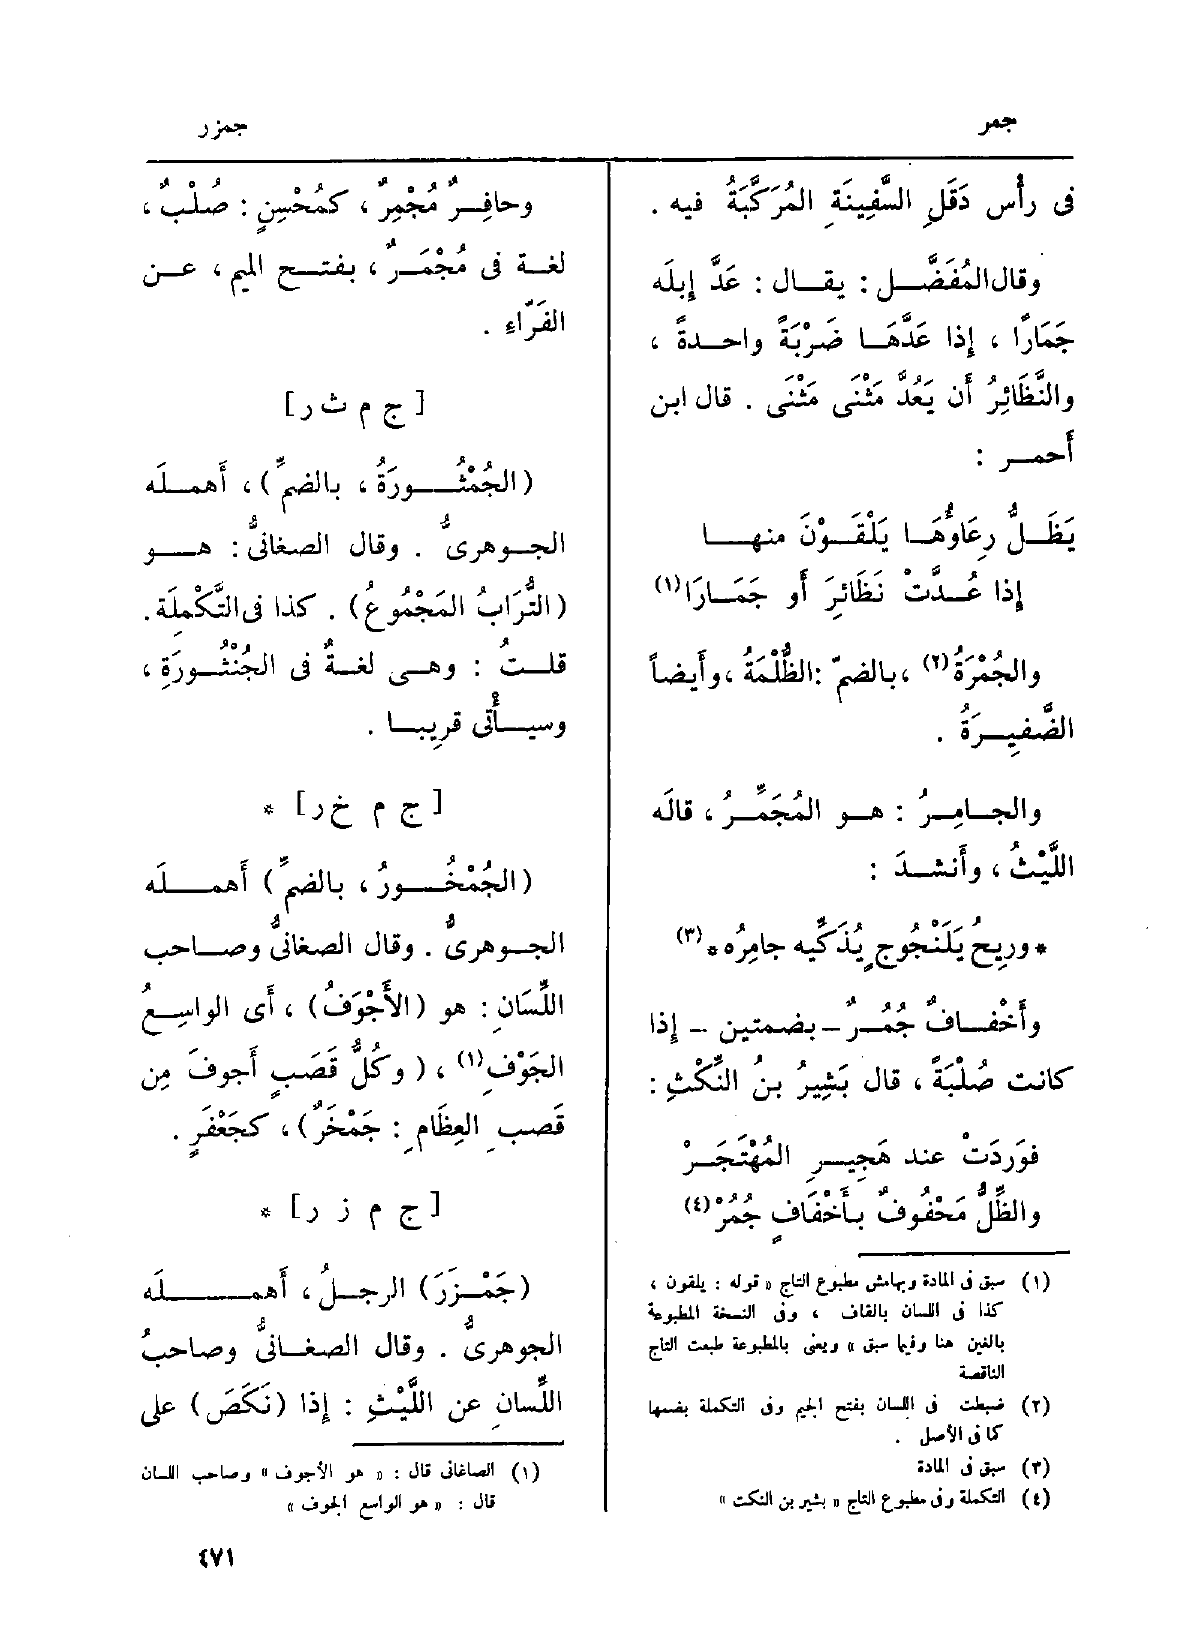 جمر
جمزر
فى رأْس دَقَلِ السَّفِينَةِ المُرَكَّبَةُ فيه .
وقال المُفَضَّـل : يقـال : عَدَّ إبلَه
جَمَارًا ، إذا عَدَّهَـا ضَرْبَةً واحـدةً ،
والنَّظَائِرُ أن يَعُدَّ مَثْنَى مَثْنَى . قال ابن
أَحمـر :
يَظَـلُّ رِعَاوُهَـا يَلْقَـوْنَ منهـا
إذا عُـدَّتْ نَظَائرَ أو جَمَـارَا (١)
والجُمْرَةُ (٢) ، بالضمّ : الظُّلْمَةُ ، وأَيضاً
الضَّفِيـرَةُ .
والجـامِـرُ : هـو المُجَمِّـرُ ، قالَه
اللَّيْثُ ، وأَنشـدَ :
* ورِيحُ يَلَنْجُوجٍ يُذَكِّيه جامِرُه * (٣)
وأَخْفـافٌ جُمُـرٌ – بضمتين – إذا
كانت صُلْبَةً ، قال بَشِيرُ بنُ النِّكْثِ :
فوَرَدَتْ عند هَجِيـرِ المُهْتَجَـرْ
والظِّلُّ مَحْفُوفٌ بأَخْفَافٍ جُمُرْ (٤)
(١) سبق فى المادة وبهامش مطبوع التاج « قوله : يلقون ،
كذا فى اللسان بالقاف ، وفى النسخة المطبوعة
بالغين هنا وفيما سبق » ويعنى بالمطبوعة طبعت التاج
الناقصة
(٢) ضبطت فى اللسان بفتح الجيم وفى التكملة بضمها
كما فى الأصل .
(٣) سبق فى المادة
(٤) التكملة وفى مطبوع التاج « بشير بن النكت »
وحافِـرٌ مُجْمِرٌ ، كمُحْسِنٍ : صُلْبٌ ،
لغـة فى مُجْمَـرٌ ، بفتـح الميم ، عـن
الفَرّاءِ .
[ ج م ث ر ]
(الجُمْثُـورَةُ ، بالضمِّ) ، أَهمـلَه
الجـوهرىُّ . وقال الصغانىُّ : هـو
(التُّرَابُ المَجْمُوعُ) . كذا فى التَّكْمِلَة .
قلـتُ : وهـى لغـةٌ فى الجُنْثُـورَةِ ،
وسيـأْتى قرِيبـا .
[ ج م خ ر ] *
(الجُمْخُـورُ ، بالضمِّ) أَهمـلَه
الجـوهرىُّ . وقال الصغانىُّ وصـاحب
اللِّسَانِ : هو (الأَجْوَفُ) ، أى الواسِـعُ
الجَوْفِ (١) ، ( وكُلُّ قَصَبٍ أَجوفَ مِن
قَصبِ العِظَامِ : جَمْخَرٌ) ، كجَعْفَرٍ .
[ ج م ز ر ] *
(جَمْـزَرَ) الرجـلُ ، أَهمـلَه
الجوهرىُّ . وقال الصغـانىُّ وصاحبُ
اللِّسانِ عن اللَّيْثِ : إذا (نَكَصَ) على
(١) الصاغانى قال : « هو الأجوف » وصاحب اللسان
قال : « هو الواسع الجوف »
٤٧١